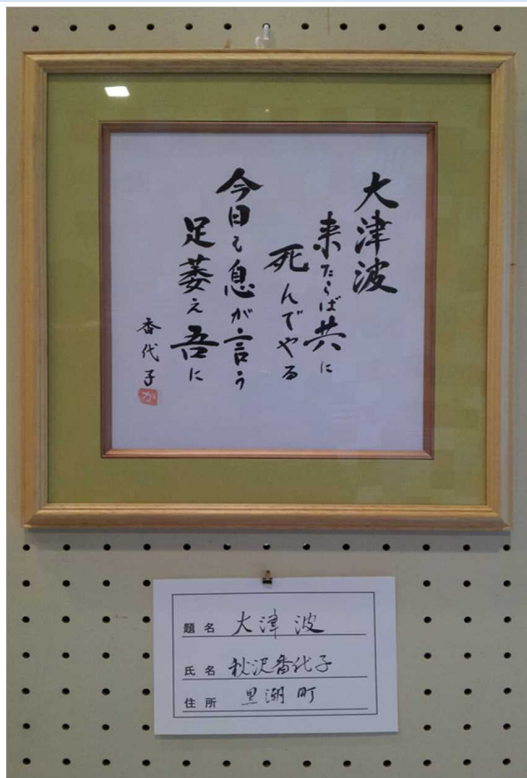 大津波
来たらば共に
死んでやる
今日も息が言う
足萎え吾に
香代子
か
題名 大津波
氏名 秋沢香代子
住所 黒潮町